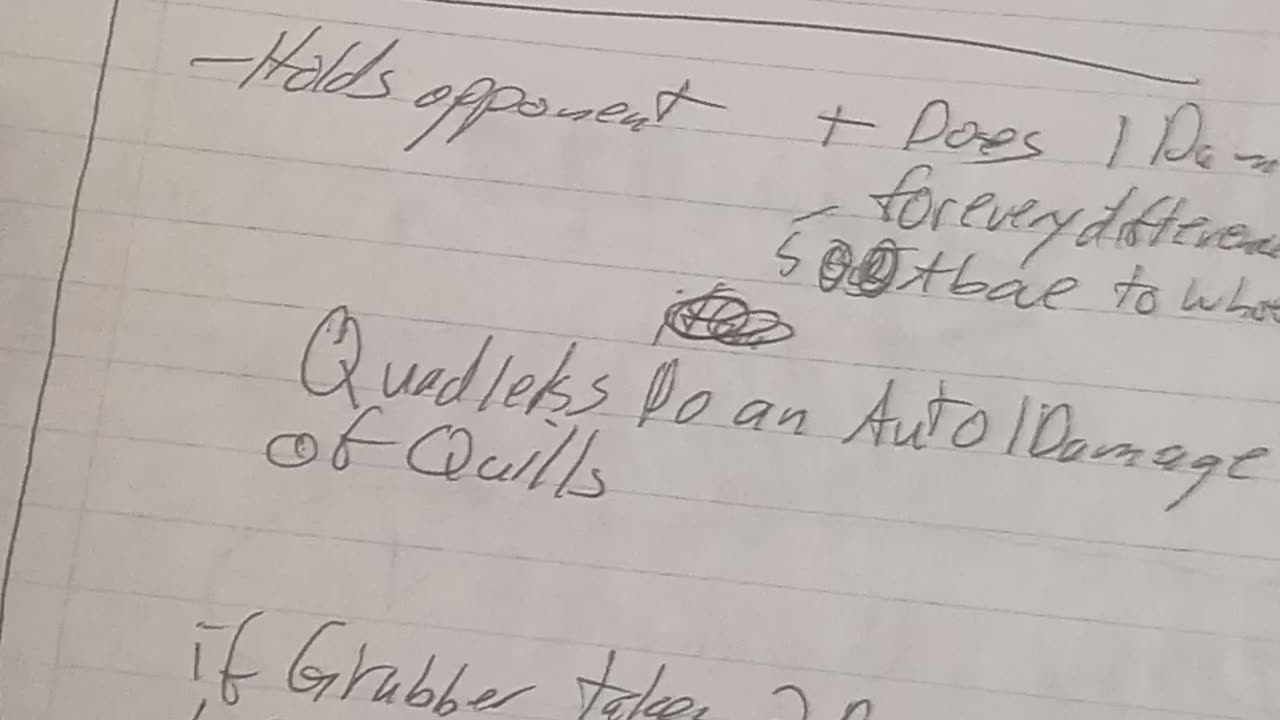 - Holds opponent + Does 1 Da
for every differen
5 tbae to what
Quadlekss Do an Auto 1 Damage
of Quills
if Grubber taken